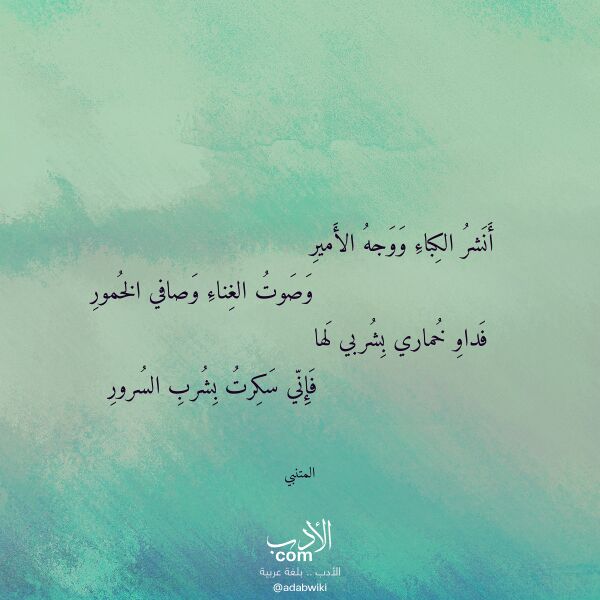 أَنَشرُ الكِباءِ وَوَجهُ الأَميرِ
وَصَوتُ الغِناءِ وَصافي الخُمورِ
فَداوِ خُماري بِشُربي لَها
فَإِنّي سَكِرتُ بِشُربِ السُرورِ
المتنبي
الأدب
com
الأدب .. بلغة عربية
@adabwiki